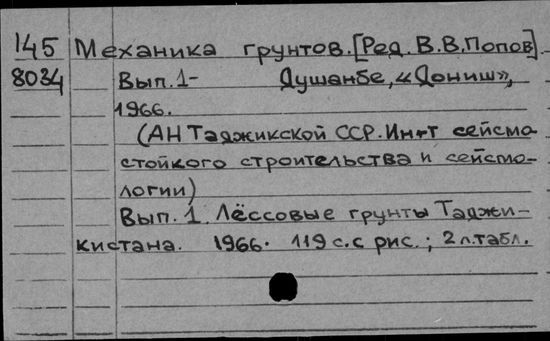 145 Механика грунтов.[Ред. В.В.Попов].
8034 Вып.1- Душанбе, «Дониш»,
1966.
(АН Таджикской ССР. Ин-т сейсмо
стойкого строительства и сейсмо-
логии)
Вып. 1. Лёссовые грунты Таджи-
кистана. 1966. 119 с.с рис.; 2 л.табл.